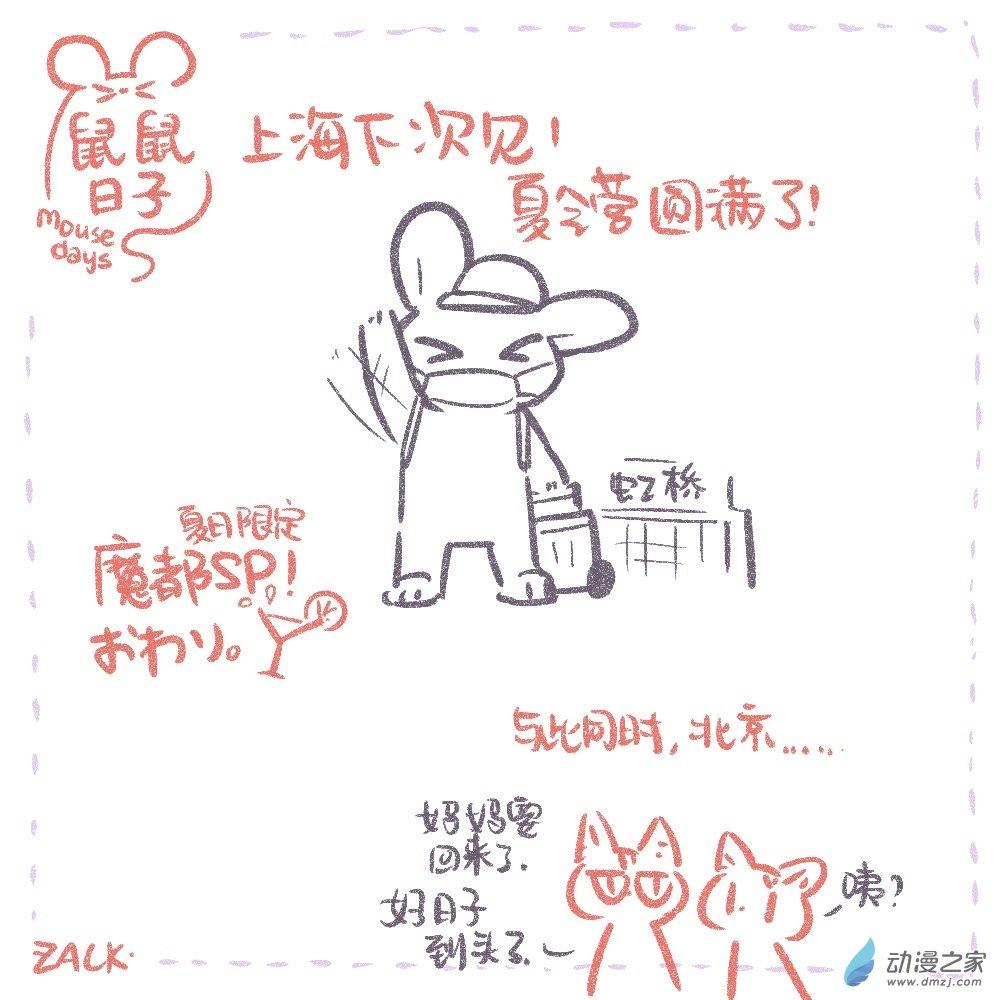 鼠鼠
日子
mouse
days
上海下次见!
夏令营圆满了!
虹桥
夏日限定
魔都SP!
おわり。
与此同时,北京......
妈妈要
回来了.
好日子
到头了.
咦?
ZALK.
动漫之家
www.dmzj.com